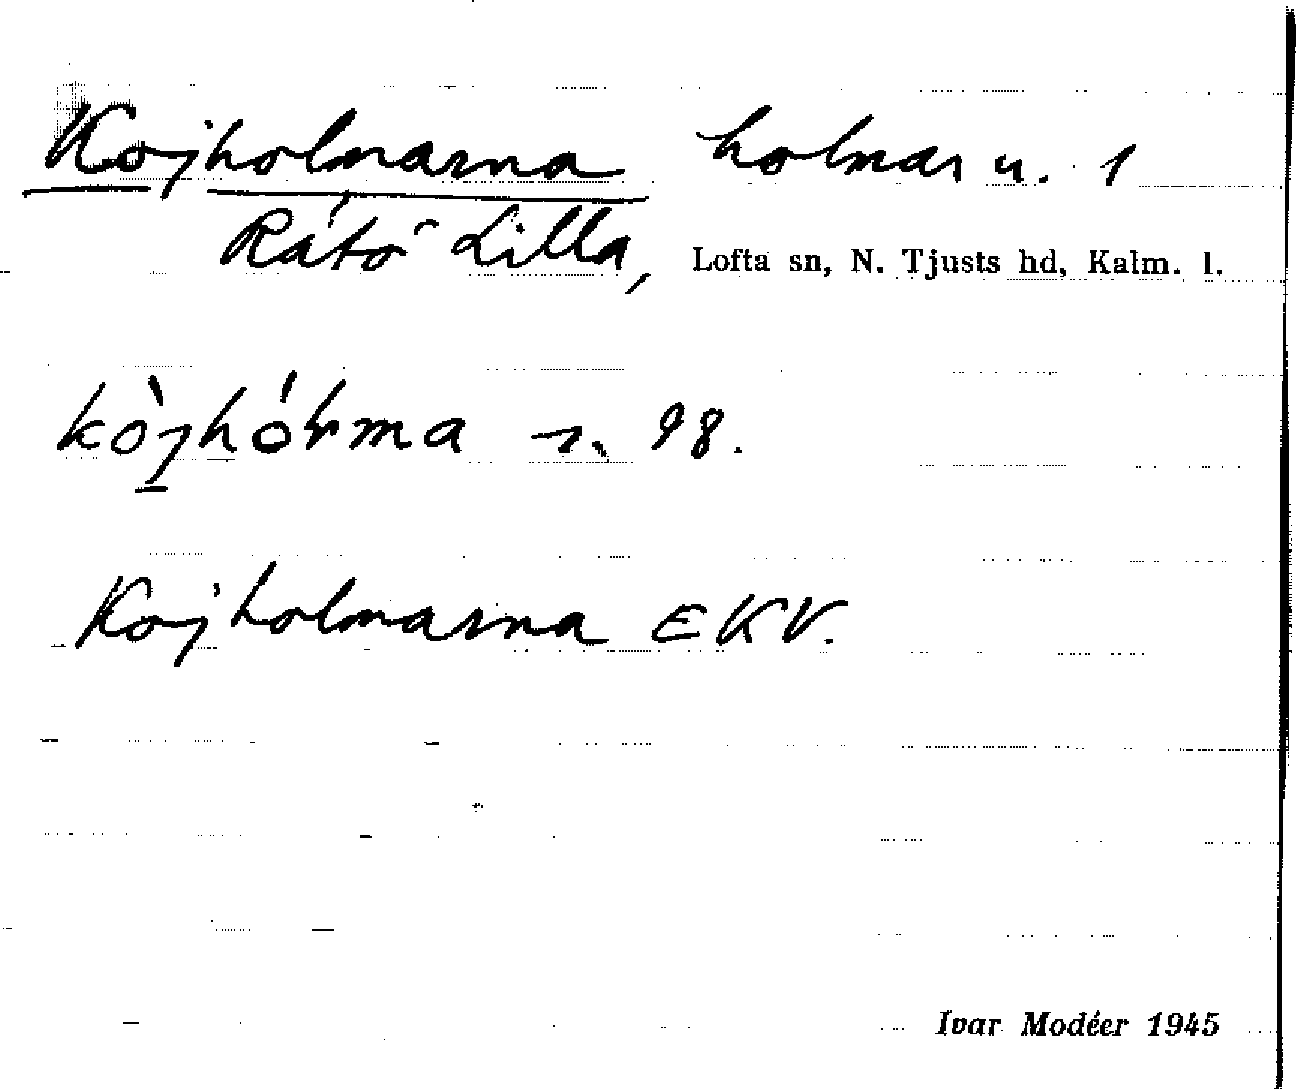 Kojholmarna holmar u. 1
Råtö Lilla, Lofta sn, N. Tjusts hd, Kalm. l.
kòjhólma s. 98.
Kojholmarna EKV.
Ivar Modéer 1945